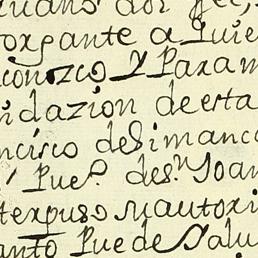 organte a quie
conozco y Para m
idazion de esta
ncisco de Simanca
Pueº. de sⁿ Joan
terpuso su autori
anto Pue de Salu